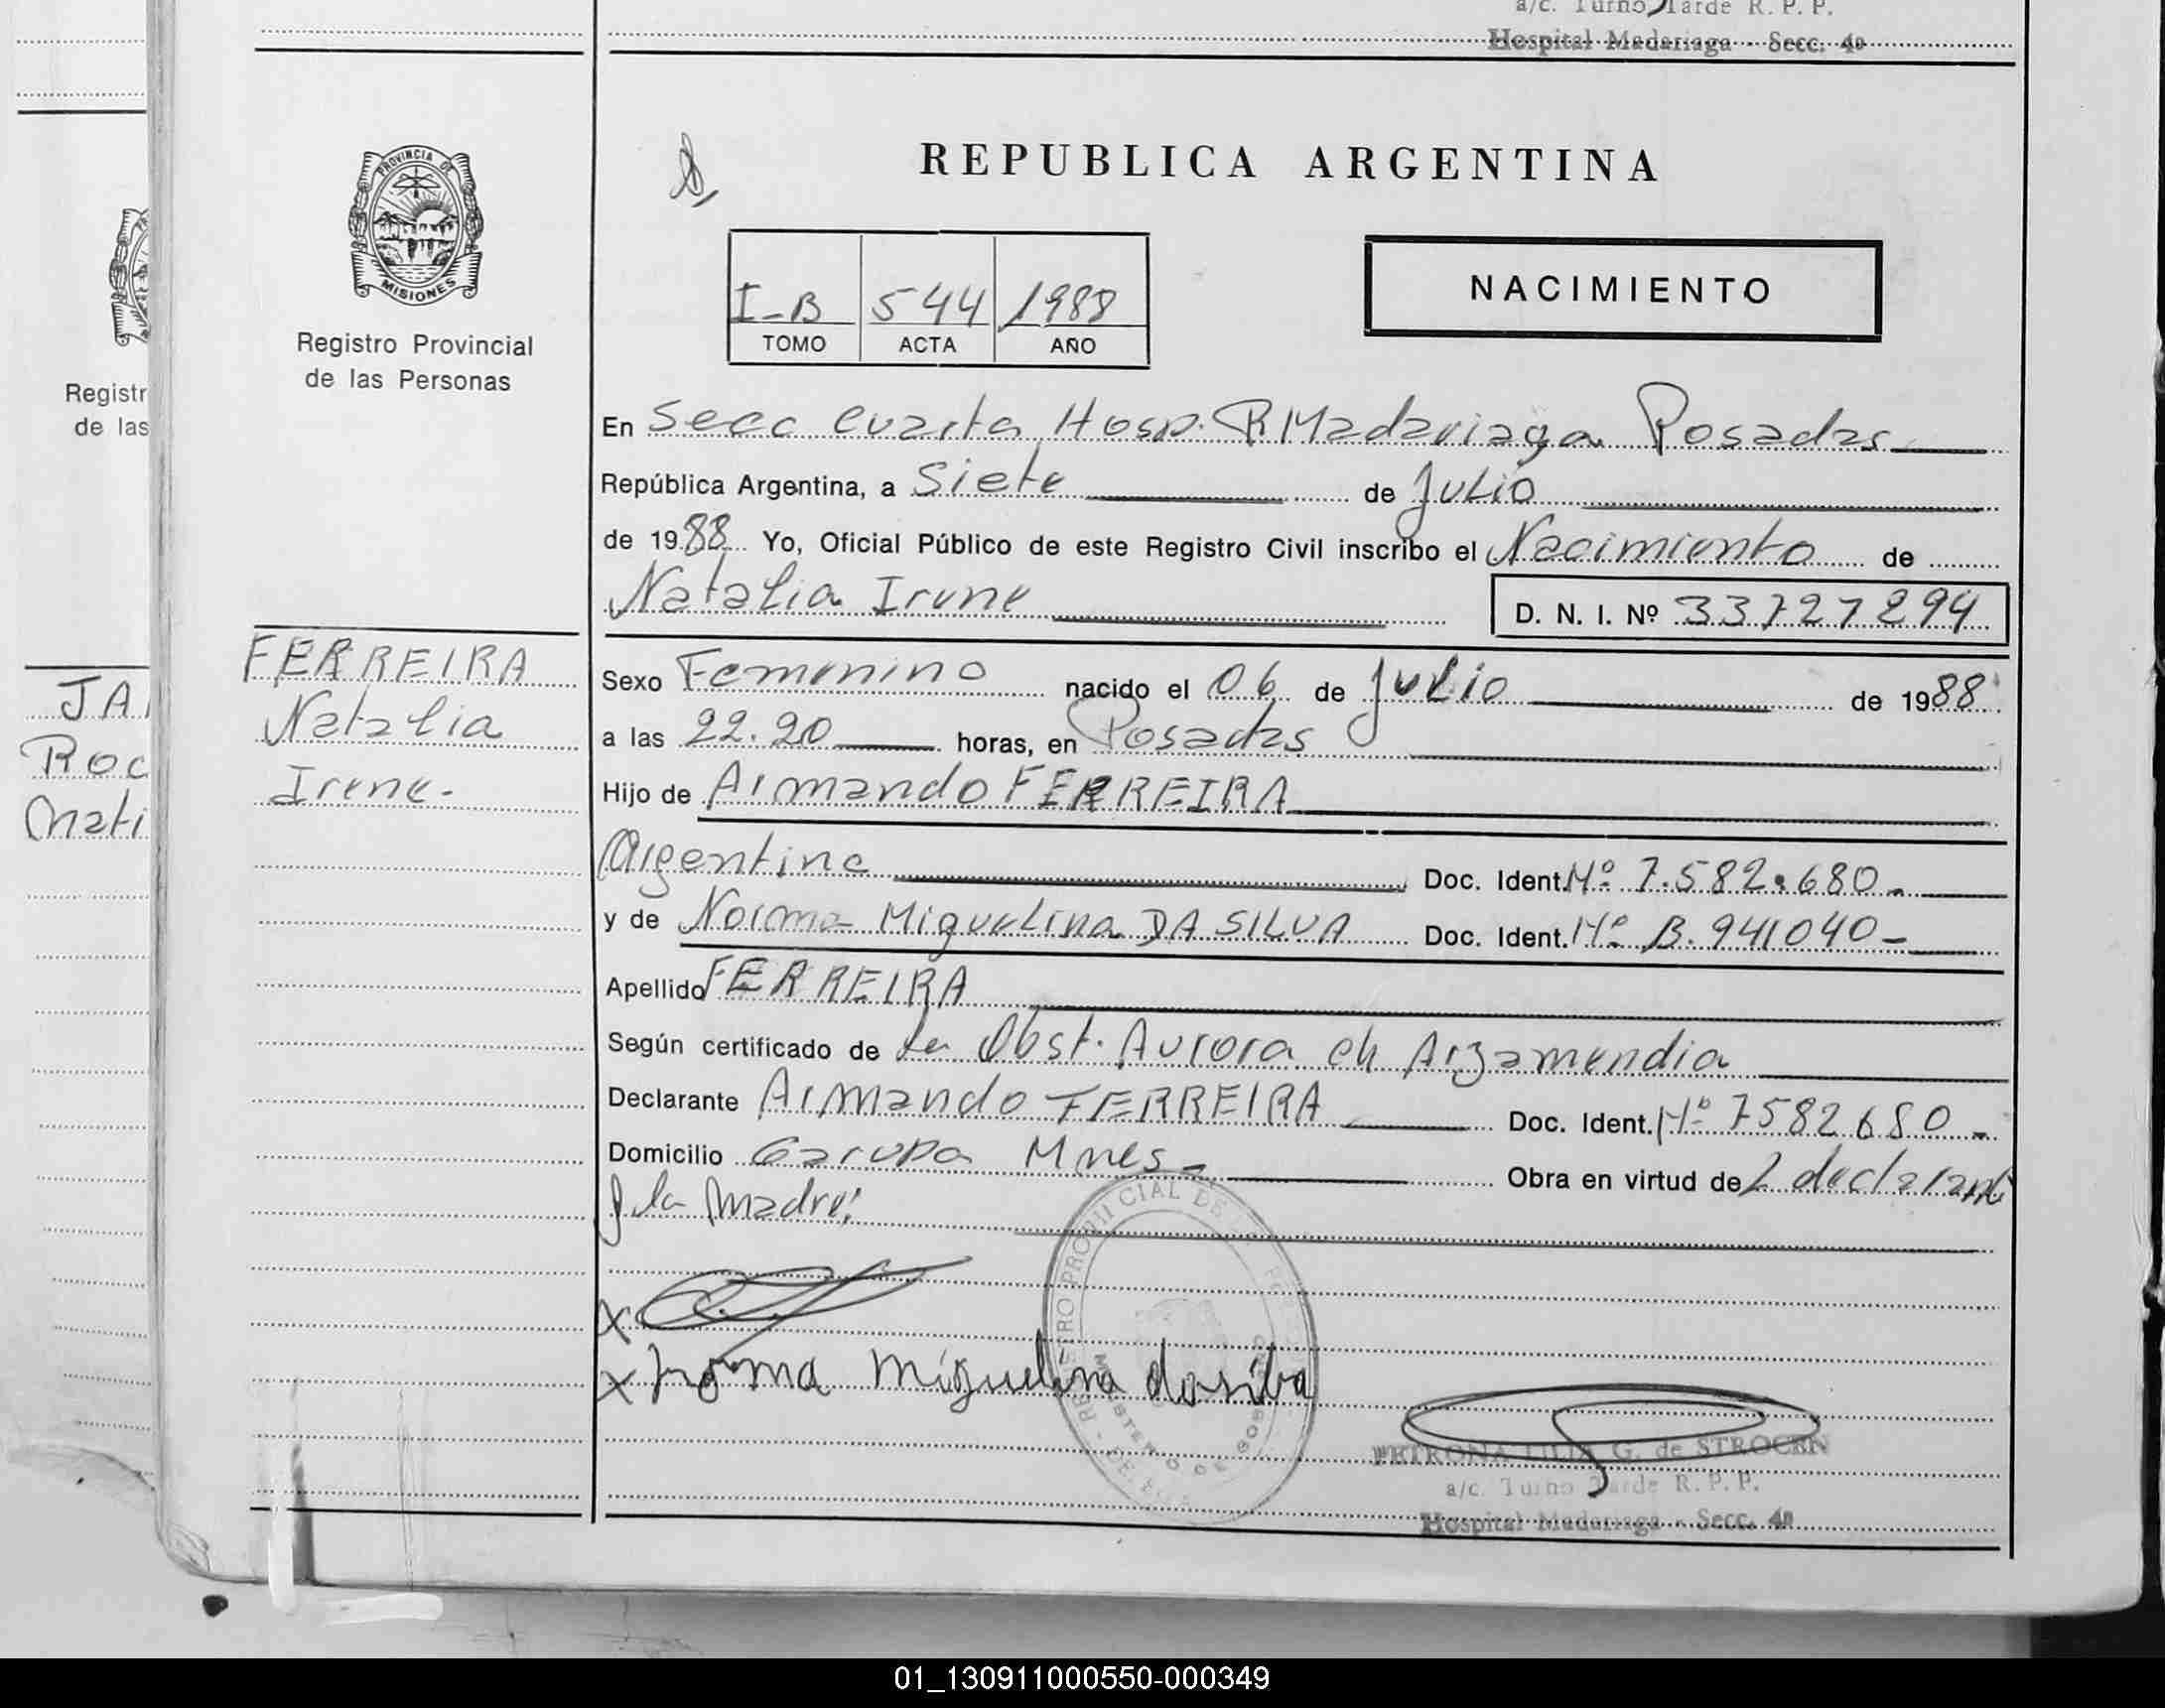 a/c. Turno Tarde R. P. P.
Hospital Madariaga - Secc. 4ª
PROVINCIA DE
MISIONES
Registro Provincial
de las Personas
Registr
de las
REPUBLICA ARGENTINA
I-B 544 1988
TOMO ACTA AÑO
NACIMIENTO
En Secc Cuarta Hosp. R Madariaga Posadas
República Argentina, a Siete de Julio
de 1988 Yo, Oficial Público de este Registro Civil inscribo el Nacimiento de
Natalia Irene
D. N. I. Nº 33727294
FERREIRA
Natalia
Irene.-
JA
Roc
Mati
Sexo Femenino nacido el 06 de Julio de 1988
a las 22.20 horas, en Posadas
Hijo de Armando FERREIRA
Argentino Doc. Ident. Mº 7.582.680.-
y de Norma Miguelina DA SILVA Doc. Ident. Mº B.941040-
Apellido FERREIRA
Según certificado de La Obst. Aurora ch Arzamendia
Declarante Armando FERREIRA Doc. Ident. Mº 7582680-
Domicilio Garupa Mnes- Obra en virtud de L declarant
y la Madre:
x
x norma miguelina dasilva
PETRONA LILIA G. de STROCEN
a/c. Turno Tarde R. P. P.
Hospital Madariaga - Secc. 4ª
01_130911000550-000349